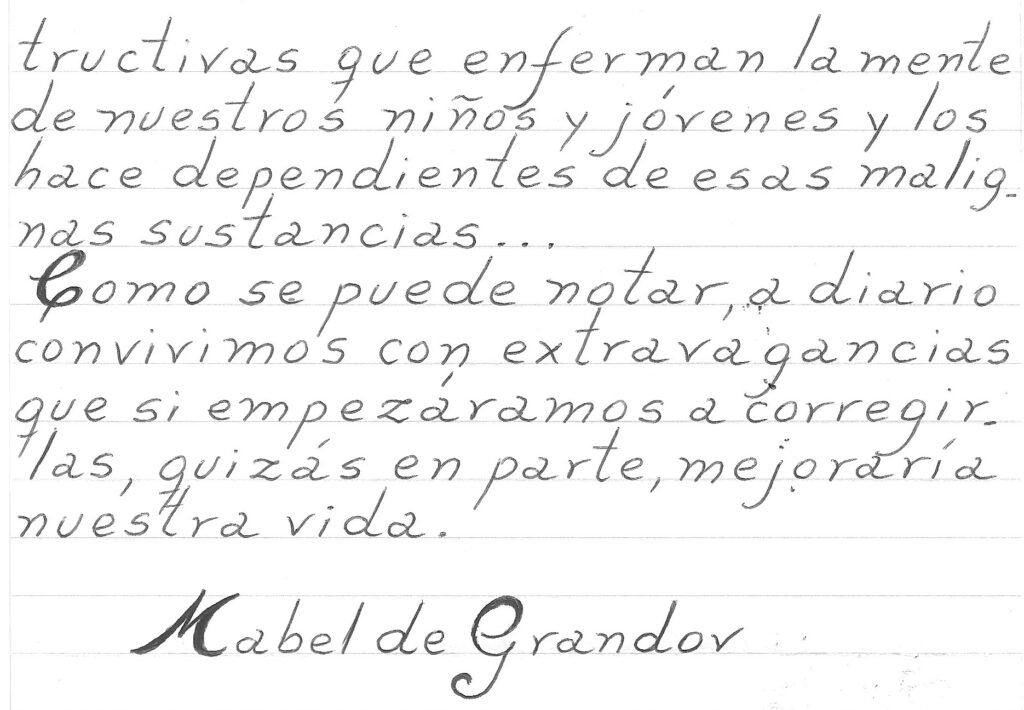 tructivas que enferman la mente
de nuestros niños y jóvenes y los
hace dependientes de esas malig-
nas sustancias...
Como se puede notar, a diario
convivimos con extravagancias
que si empezáramos a corregir-
las, quizás en parte, mejoraría
nuestra vida.
Mabel de Grandov